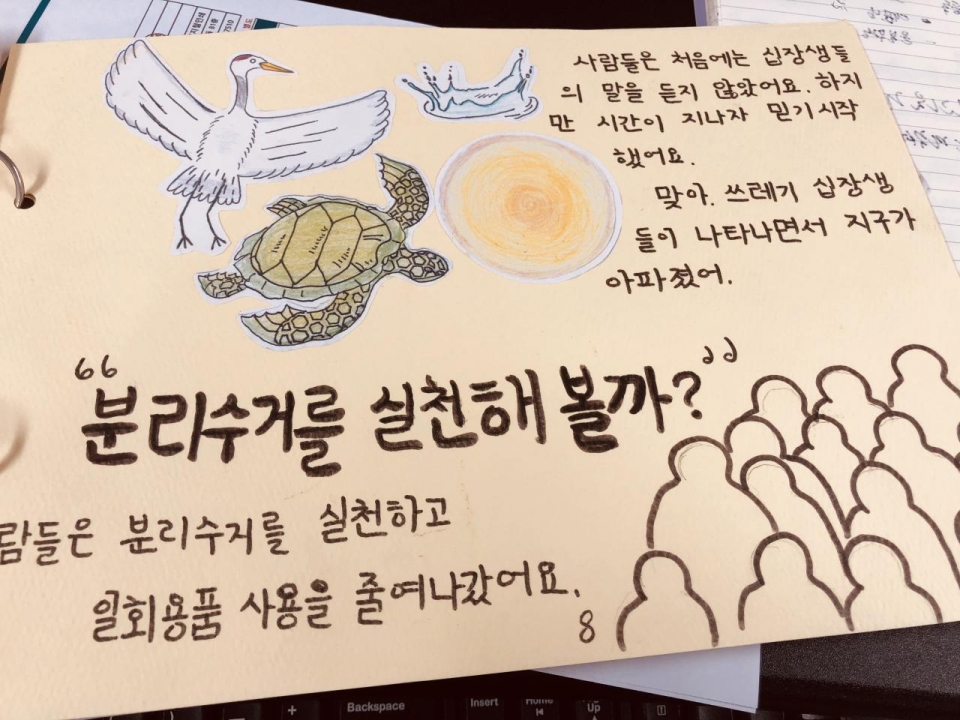 사람들은 처음에는 십장생들
의 말을 듣지 않았어요. 하지
만 시간이 지나자 믿기시작
했어요.
맞아. 쓰레기 십장생
들이 나타나면서 지구가
아파졌어.
"분리수거를 실천해 볼까?"
람들은 분리수거를 실천하고
일회용품 사용을 줄여나갔어요.
8
+
Backspace
Insert
Home
Up